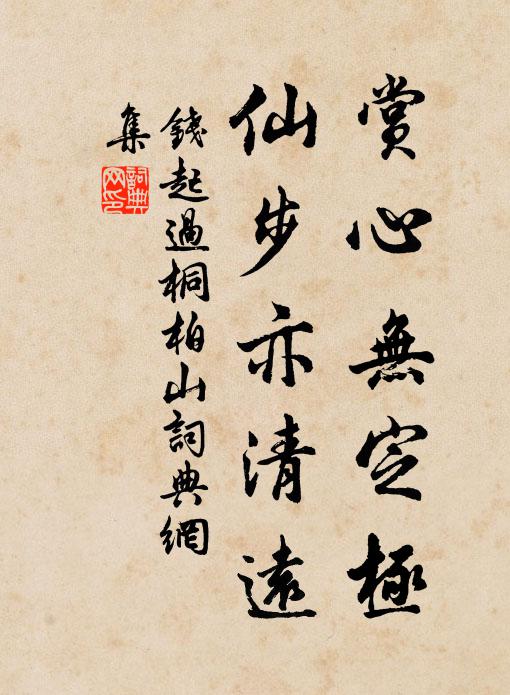 賞心無定極
仙步亦清遠
錢起過桐柏山詞典網
集
詞典网印